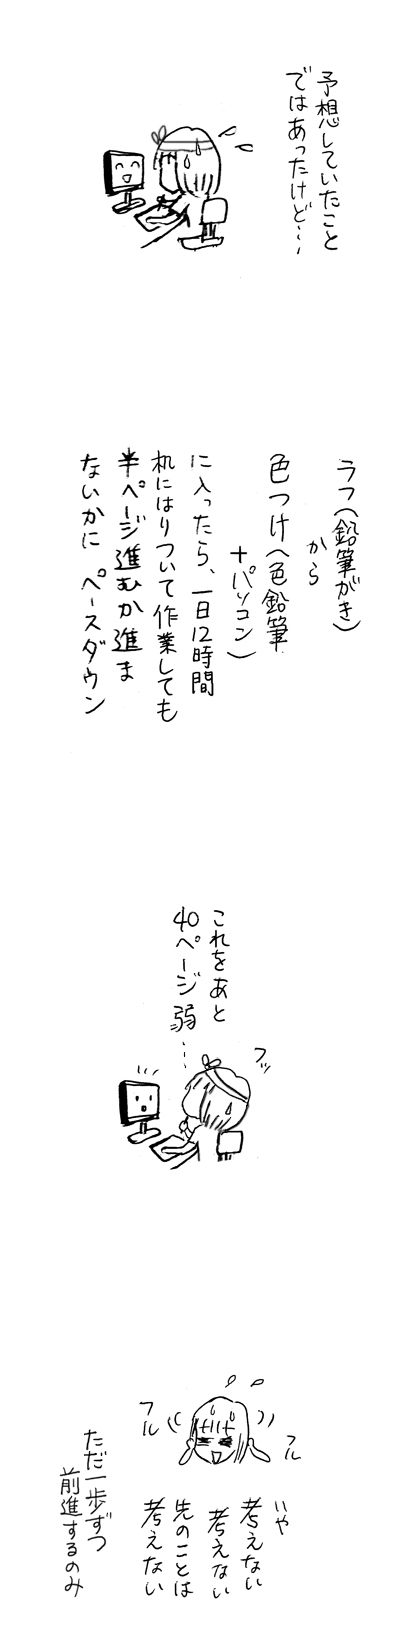 予想していたこと
ではあったけど…
ラフ(鉛筆がき)
から
色つけ(色鉛筆
+パソコン)
に入ったら、一日12時間
机にはりついて作業しても
半ページ進むか進ま
ないかに ペースダウン
これをあと
40ページ弱…
フッ
フル
フル
いや
考えない
考えない
先のことは
考えない
ただ一歩ずつ
前進するのみ